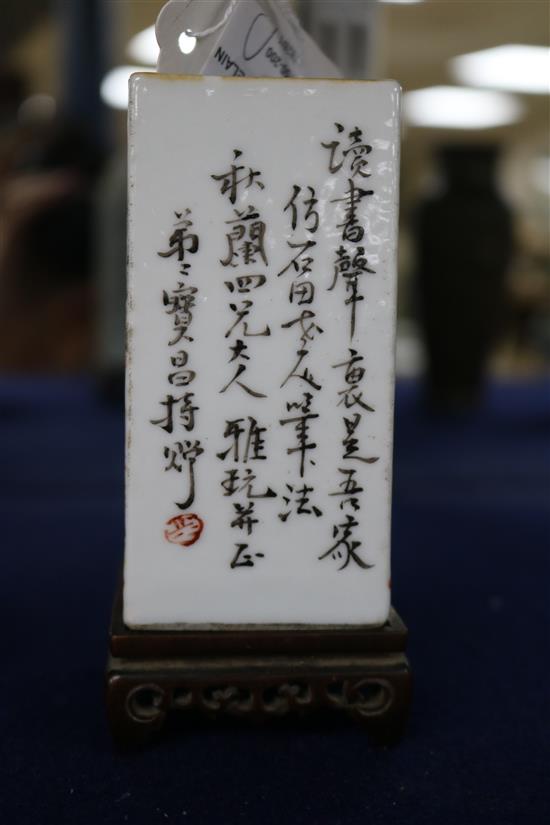 讀書聲裏是吾家
仿石田老人筆法
秋蘭四兄大人 雅玩並正
弟寶昌持贈
ELAIN